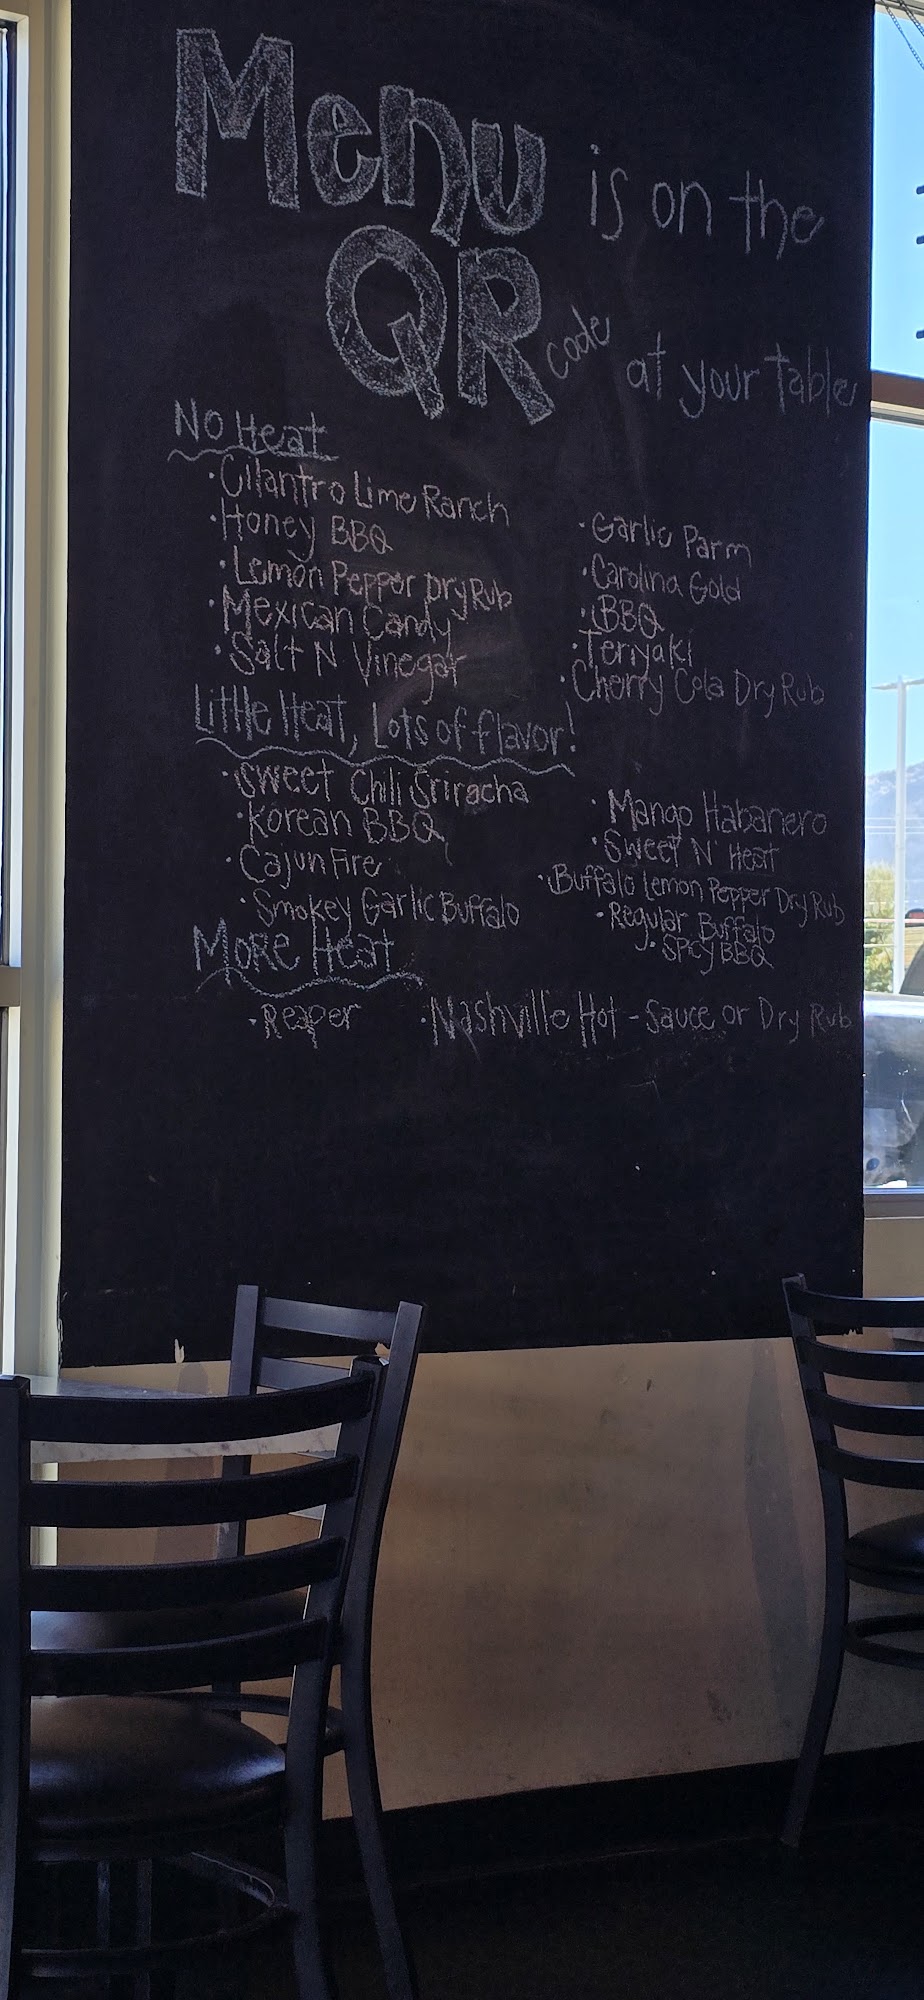 Menu is on the
QR code at your table
No Heat
· Cilantro Lime Ranch
· Honey BBQ
· Lemon Pepper Dry Rub
· Mexican Candy
· Salt N Vinegar
· Garlic Parm
· Carolina Gold
· BBQ
· Teriyaki
· Cherry Cola Dry Rub
Little Heat, Lots of flavor!
· Sweet Chili Sriracha
· Korean BBQ
· Cajun Fire
· Smokey Garlic Buffalo
· Mango Habanero
· Sweet N' Heat
· Buffalo Lemon Pepper Dry Rub
· Regular Buffalo
· SPCY BBQ
More Heat
· Reaper
· Nashville Hot - Sauce or Dry Rub